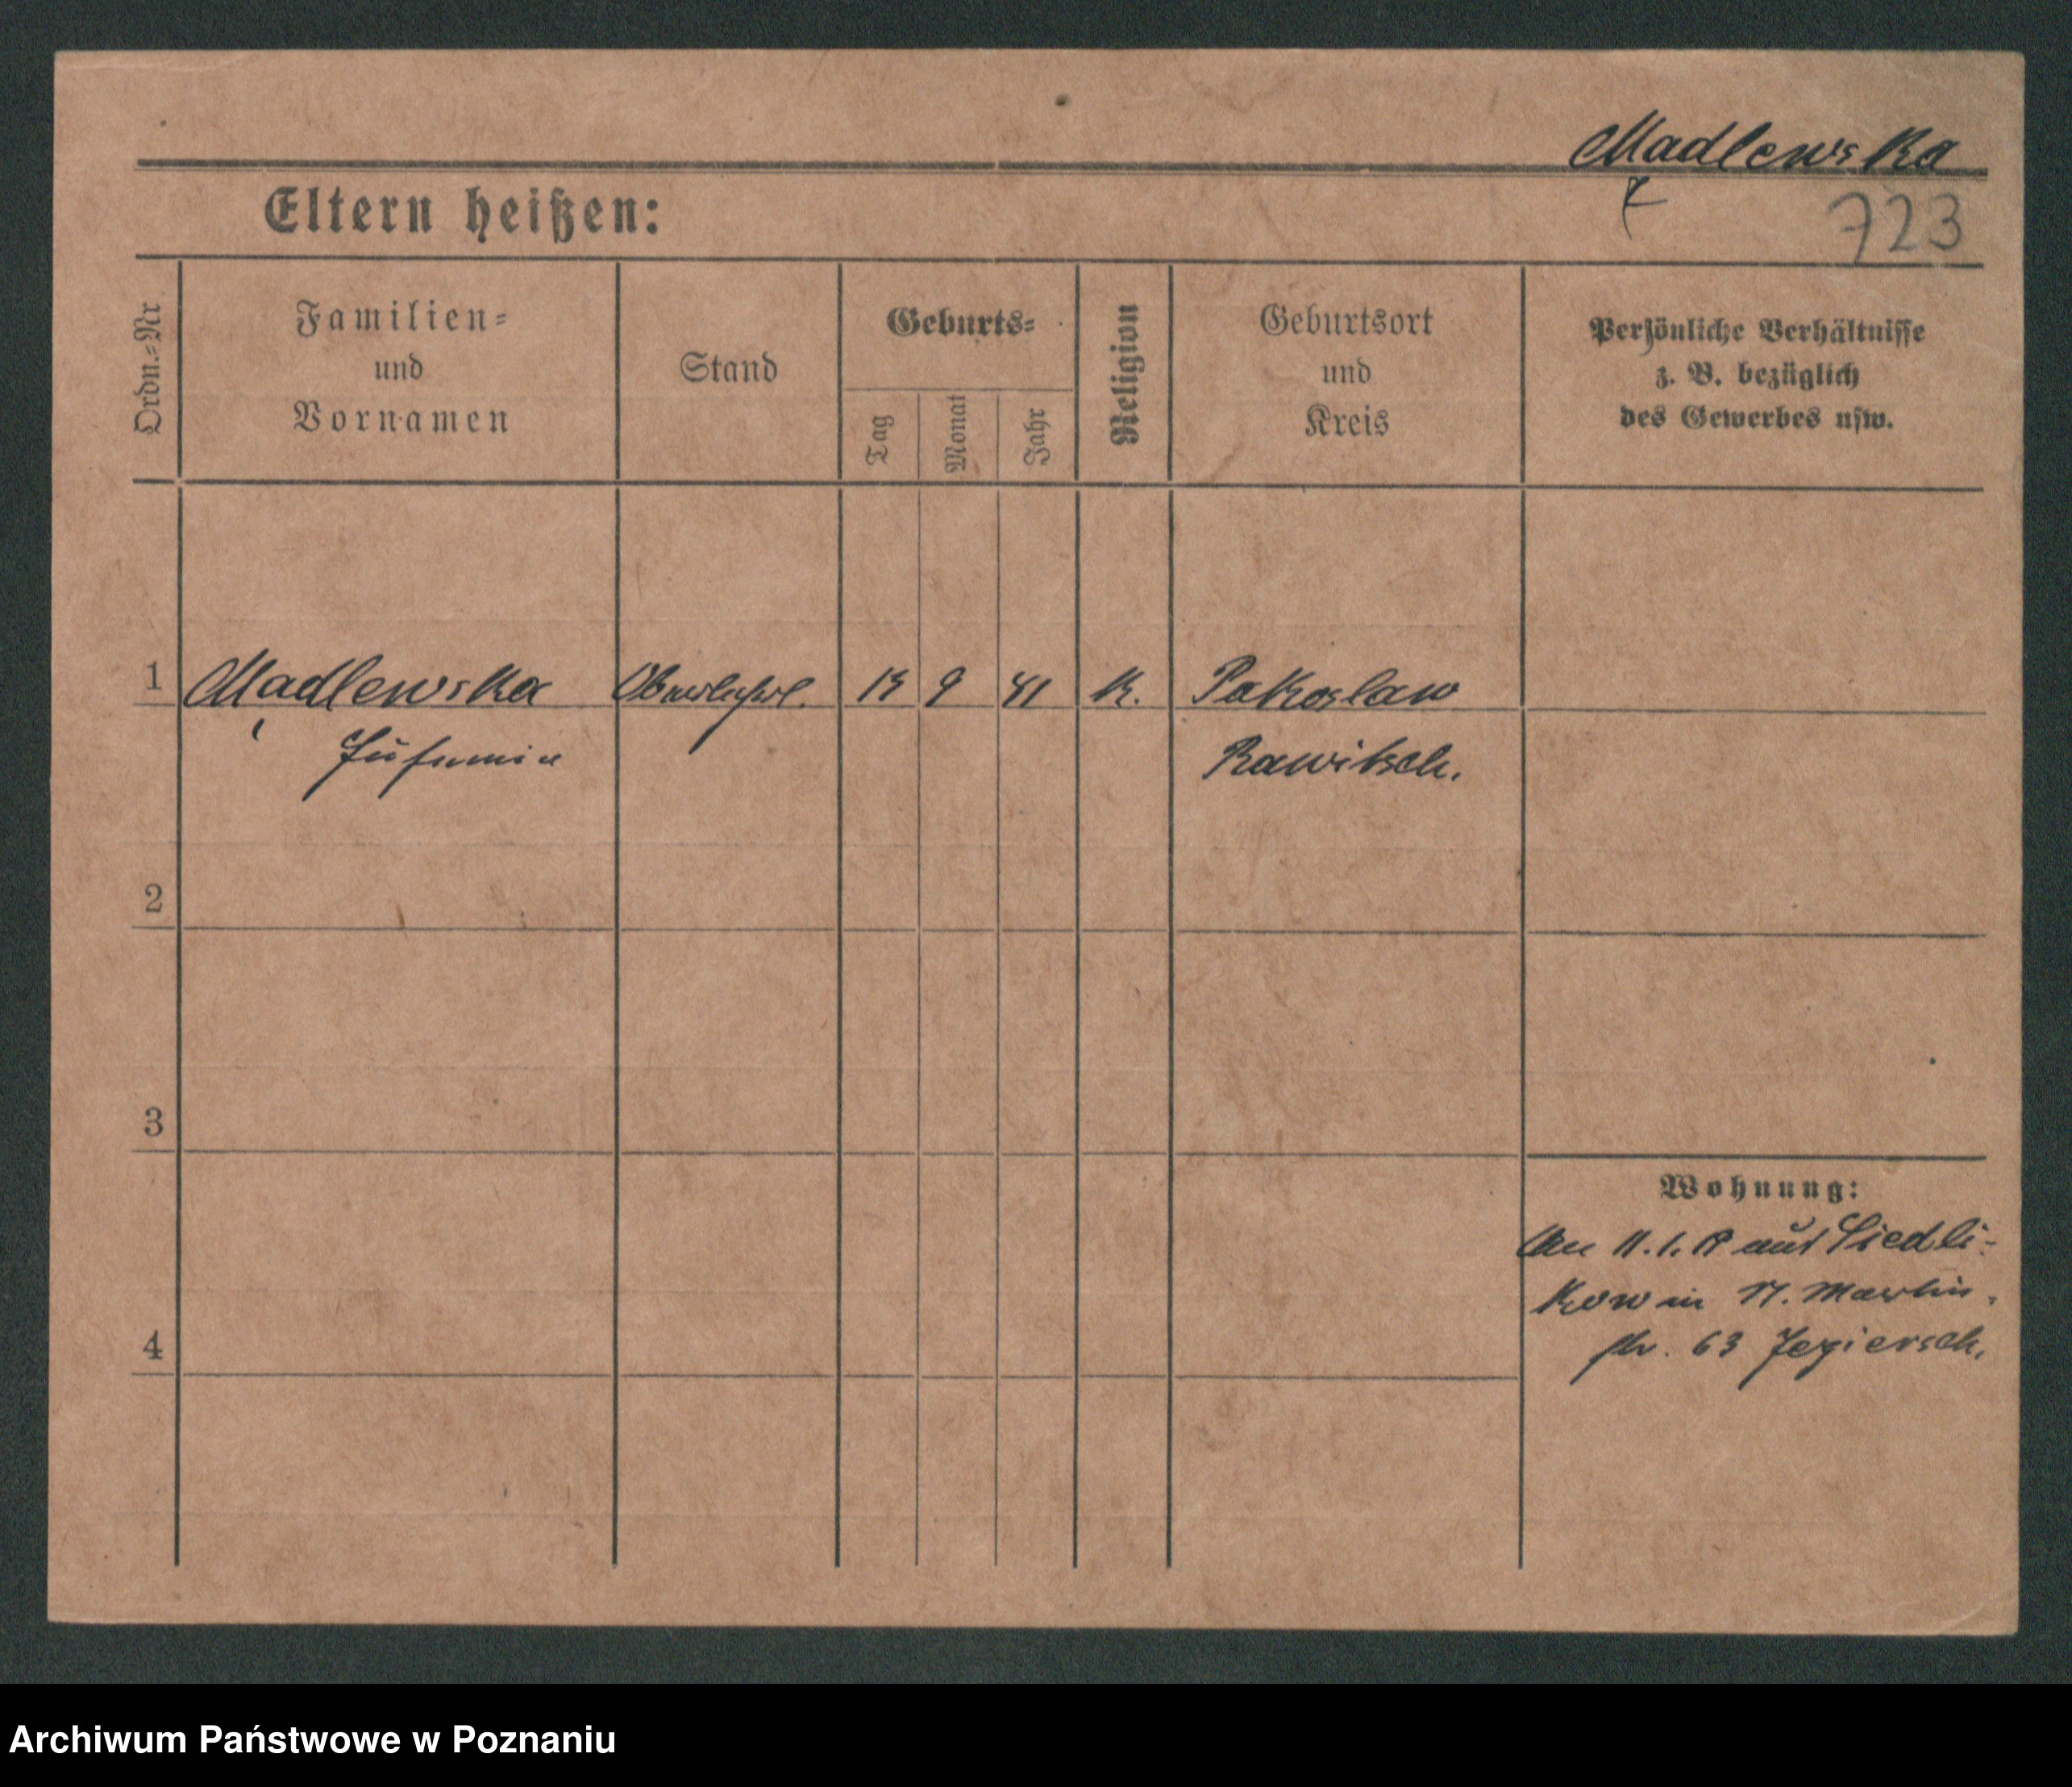 Madlewska
723
Eltern heißen:
Ordn.=Nr
Familien=
und
Vornamen
Stand
Geburts=
Tag
Monat
Jahr
Religion
Geburtsort
und
Kreis
Persönliche Verhältnisse
z. B. bezüglich
des Gewerbes usw.
1 Madlewska 9 K. Pakoslaw
Rawitsch.
2
3
Wohnung:
An 11. 1. aus Siedli-
kow in St. Martin-
4
str. 63
Archiwum Państwowe w Poznaniu